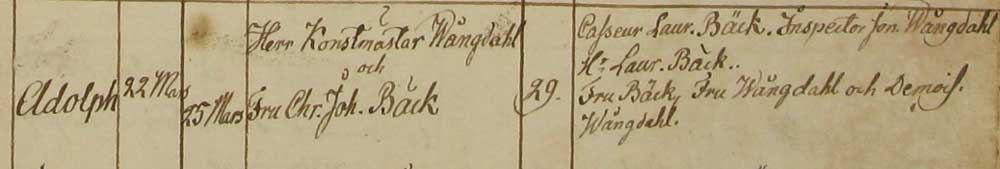 Adolph
22 Mars
25 Mars
Herr Konstmästar Wångdahl
och
Fru Chr. Joh. Bäck
29.
Casseur Laur. Bäck. Inspector Jon. Wångdahl
Hr Laur. Bäck..
Fru Bäck, Fru Wångdahl och Demois.
Wångdahl.